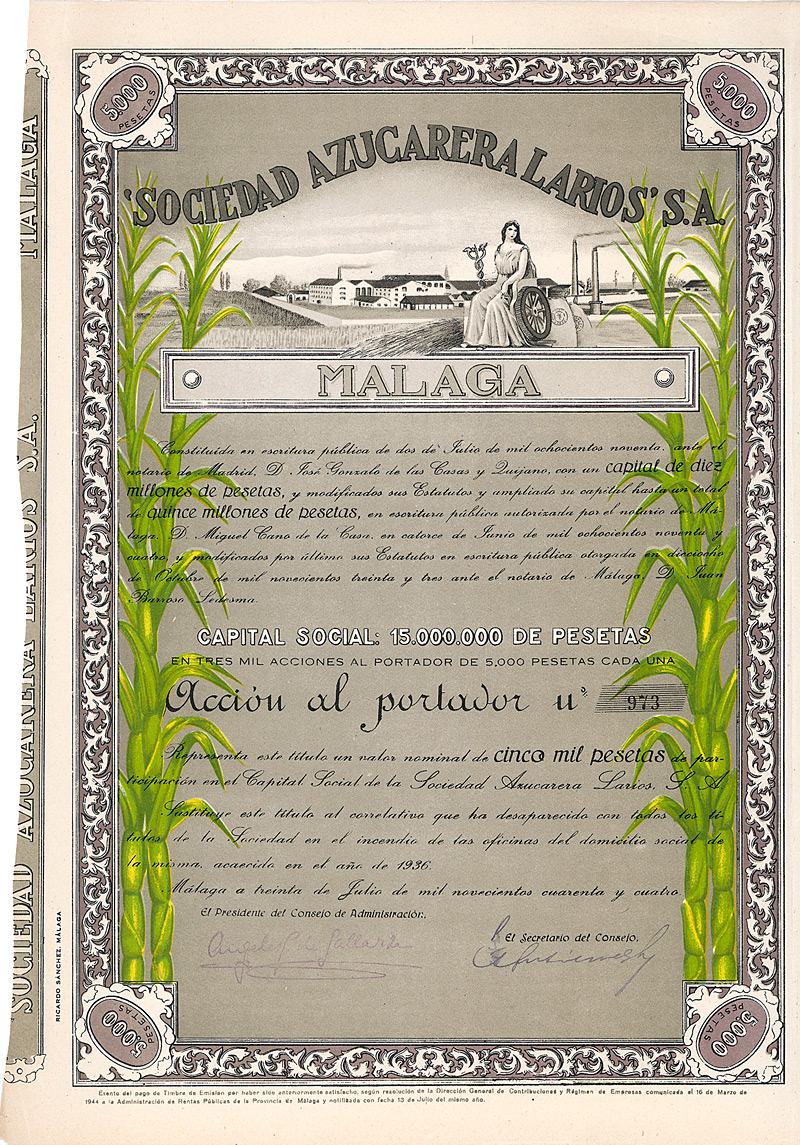 5.000 PESETAS
5.000 PESETAS
"SOCIEDAD AZUCARERA LARIOS" S.A.
MALAGA
Constituida en escritura pública de dos de Julio de mil ochocientos noventa, ante el
notario de Madrid, D. José Gonzalo de las Casas y Quijano, con un capital de diez
millones de pesetas, y modificados sus Estatutos y ampliado su capital hasta un total
de quince millones de pesetas, en escritura pública autorizada por el notario de Má-
laga, D. Miguel Cano de la Casa, en catorce de Junio de mil ochocientos noventa y
cuatro, y modificados por último sus Estatutos en escritura pública otorgada en dieciocho
de Octubre de mil novecientos treinta y tres ante el notario de Málaga, D. Juan
Barroso Ledesma.
CAPITAL SOCIAL: 15.000.000 DE PESETAS
EN TRES MIL ACCIONES AL PORTADOR DE 5,000 PESETAS CADA UNA
Acción al portador nº 973
Representa este título un valor nominal de cinco mil pesetas de par-
ticipación en el Capital Social de la Sociedad Azucarera Larios, S. A
Sustituye este título al correlativo que ha desaparecido con todos los tí-
tulos de la Sociedad en el incendio de las oficinas del domicilio social de
la misma, acaecido en el año de 1936.
Málaga a treinta de Julio de mil novecientos cuarenta y cuatro.
El Presidente del Consejo de Administración,
El Secretario del Consejo,
5.000 PESETAS
5.000 PESETAS
Exento del pago de Timbre de Emisión por haber sido anteriormente satisfecho, según resolución de la Dirección General de Contribuciones y Régimen de Empresas comunicada el 16 de Marzo de
1944 a la Administración de Rentas Públicas de la Provincia de Málaga y notificada con fecha 13 de Julio del mismo año.
RICARDO SÁNCHEZ, MÁLAGA
SOCIEDAD AZUCARERA LARIOS S.A. MALAGA